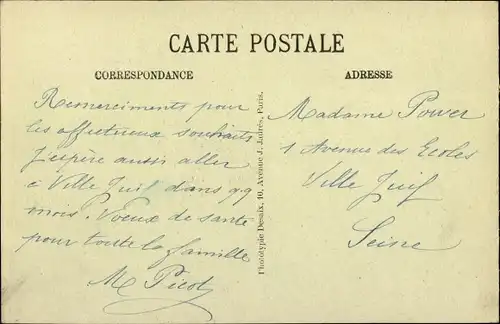 CARTE POSTALE
CORRESPONDANCE
Remerciments pour
les affectueux souhaits
J'espère aussi aller
à Ville Juif dans qq
mois. Voeux de santé
pour toute la famille
M Picot
Phototypie Desaix, 40, Avenue J. Jaurès, Paris.
ADRESSE
Madame Power
1 Avenue des Ecoles
Ville Juif
Seine